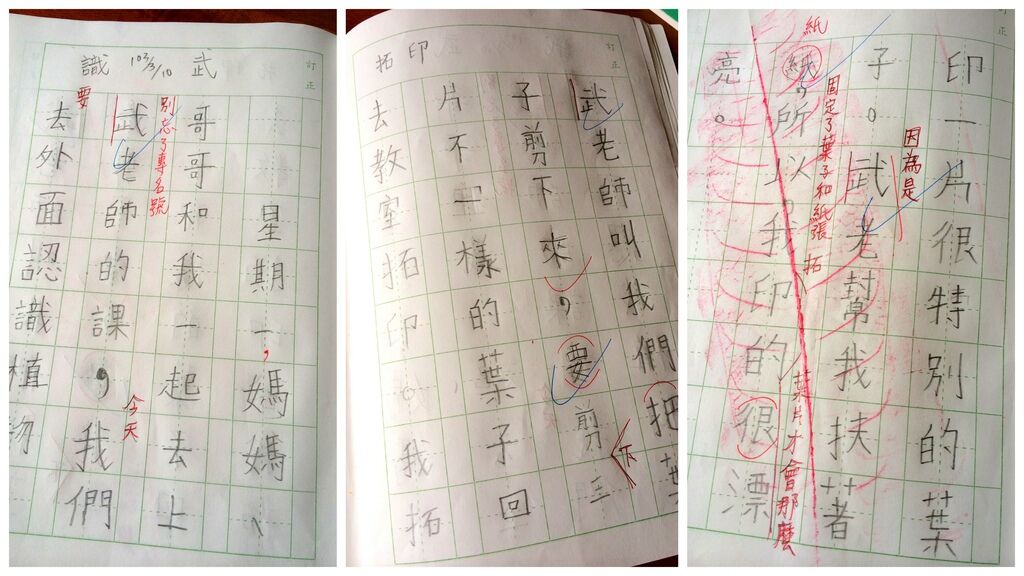 訂正
武
103/3/10
識
星期一,媽媽、
哥哥和我一起去上
別忘了專名號
今天
武老師的課,我們
要
去外面認識植物
訂正
拓印
武老師叫我們把葉
下
子剪下來,要剪三
片不一樣的葉子回
去教室拓印。我拓
訂正
印一片很特別的葉
因為是
子。武老幫我扶著
固定了葉子和紙張
拓
葉片才會那麼
紙
紙,所以我印的很漂
亮。